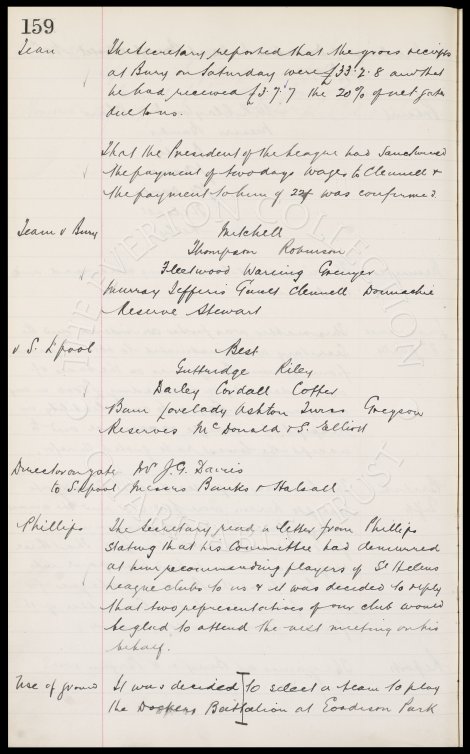 159
Team The Secretary reported that the gross receipts
at Bury on Saturday were £33.2.8 and that
he had received £3.7.7 the 20% of net gate
due to us.
That the President of the League had sanctioned
the payment of two days wages to Clennell &
the payment to him of 22/ was confirmed.
Team v Bury Mitchell
Thompson Robinson
Fleetwood Wareing Grenyer
Murray Jefferis Gault Clennell Donnachie
Reserve Stewart
v S. L'pool Best
Guttridge Riley
Dailey Cordall Cotter
Bain Lovelady Ashton Swas Greyson
Reserves McDonald & S. Elliott
Director on gate Dr J.G. Davies
to S L'pool Messrs Banks & Halsall
Phillips The Secretary read a letter from Phillips
stating that his Committee had demurred
at him recommending players of St Helens
League clubs to us & it was decided to reply
that two representatives of our club would
be glad to attend the next meeting on his
behalf.
Use of ground It was decided to select a team to play
the Dockers Battalion at Goodison Park
THE EVERTON COLLECTION
CHARITABLE TRUST